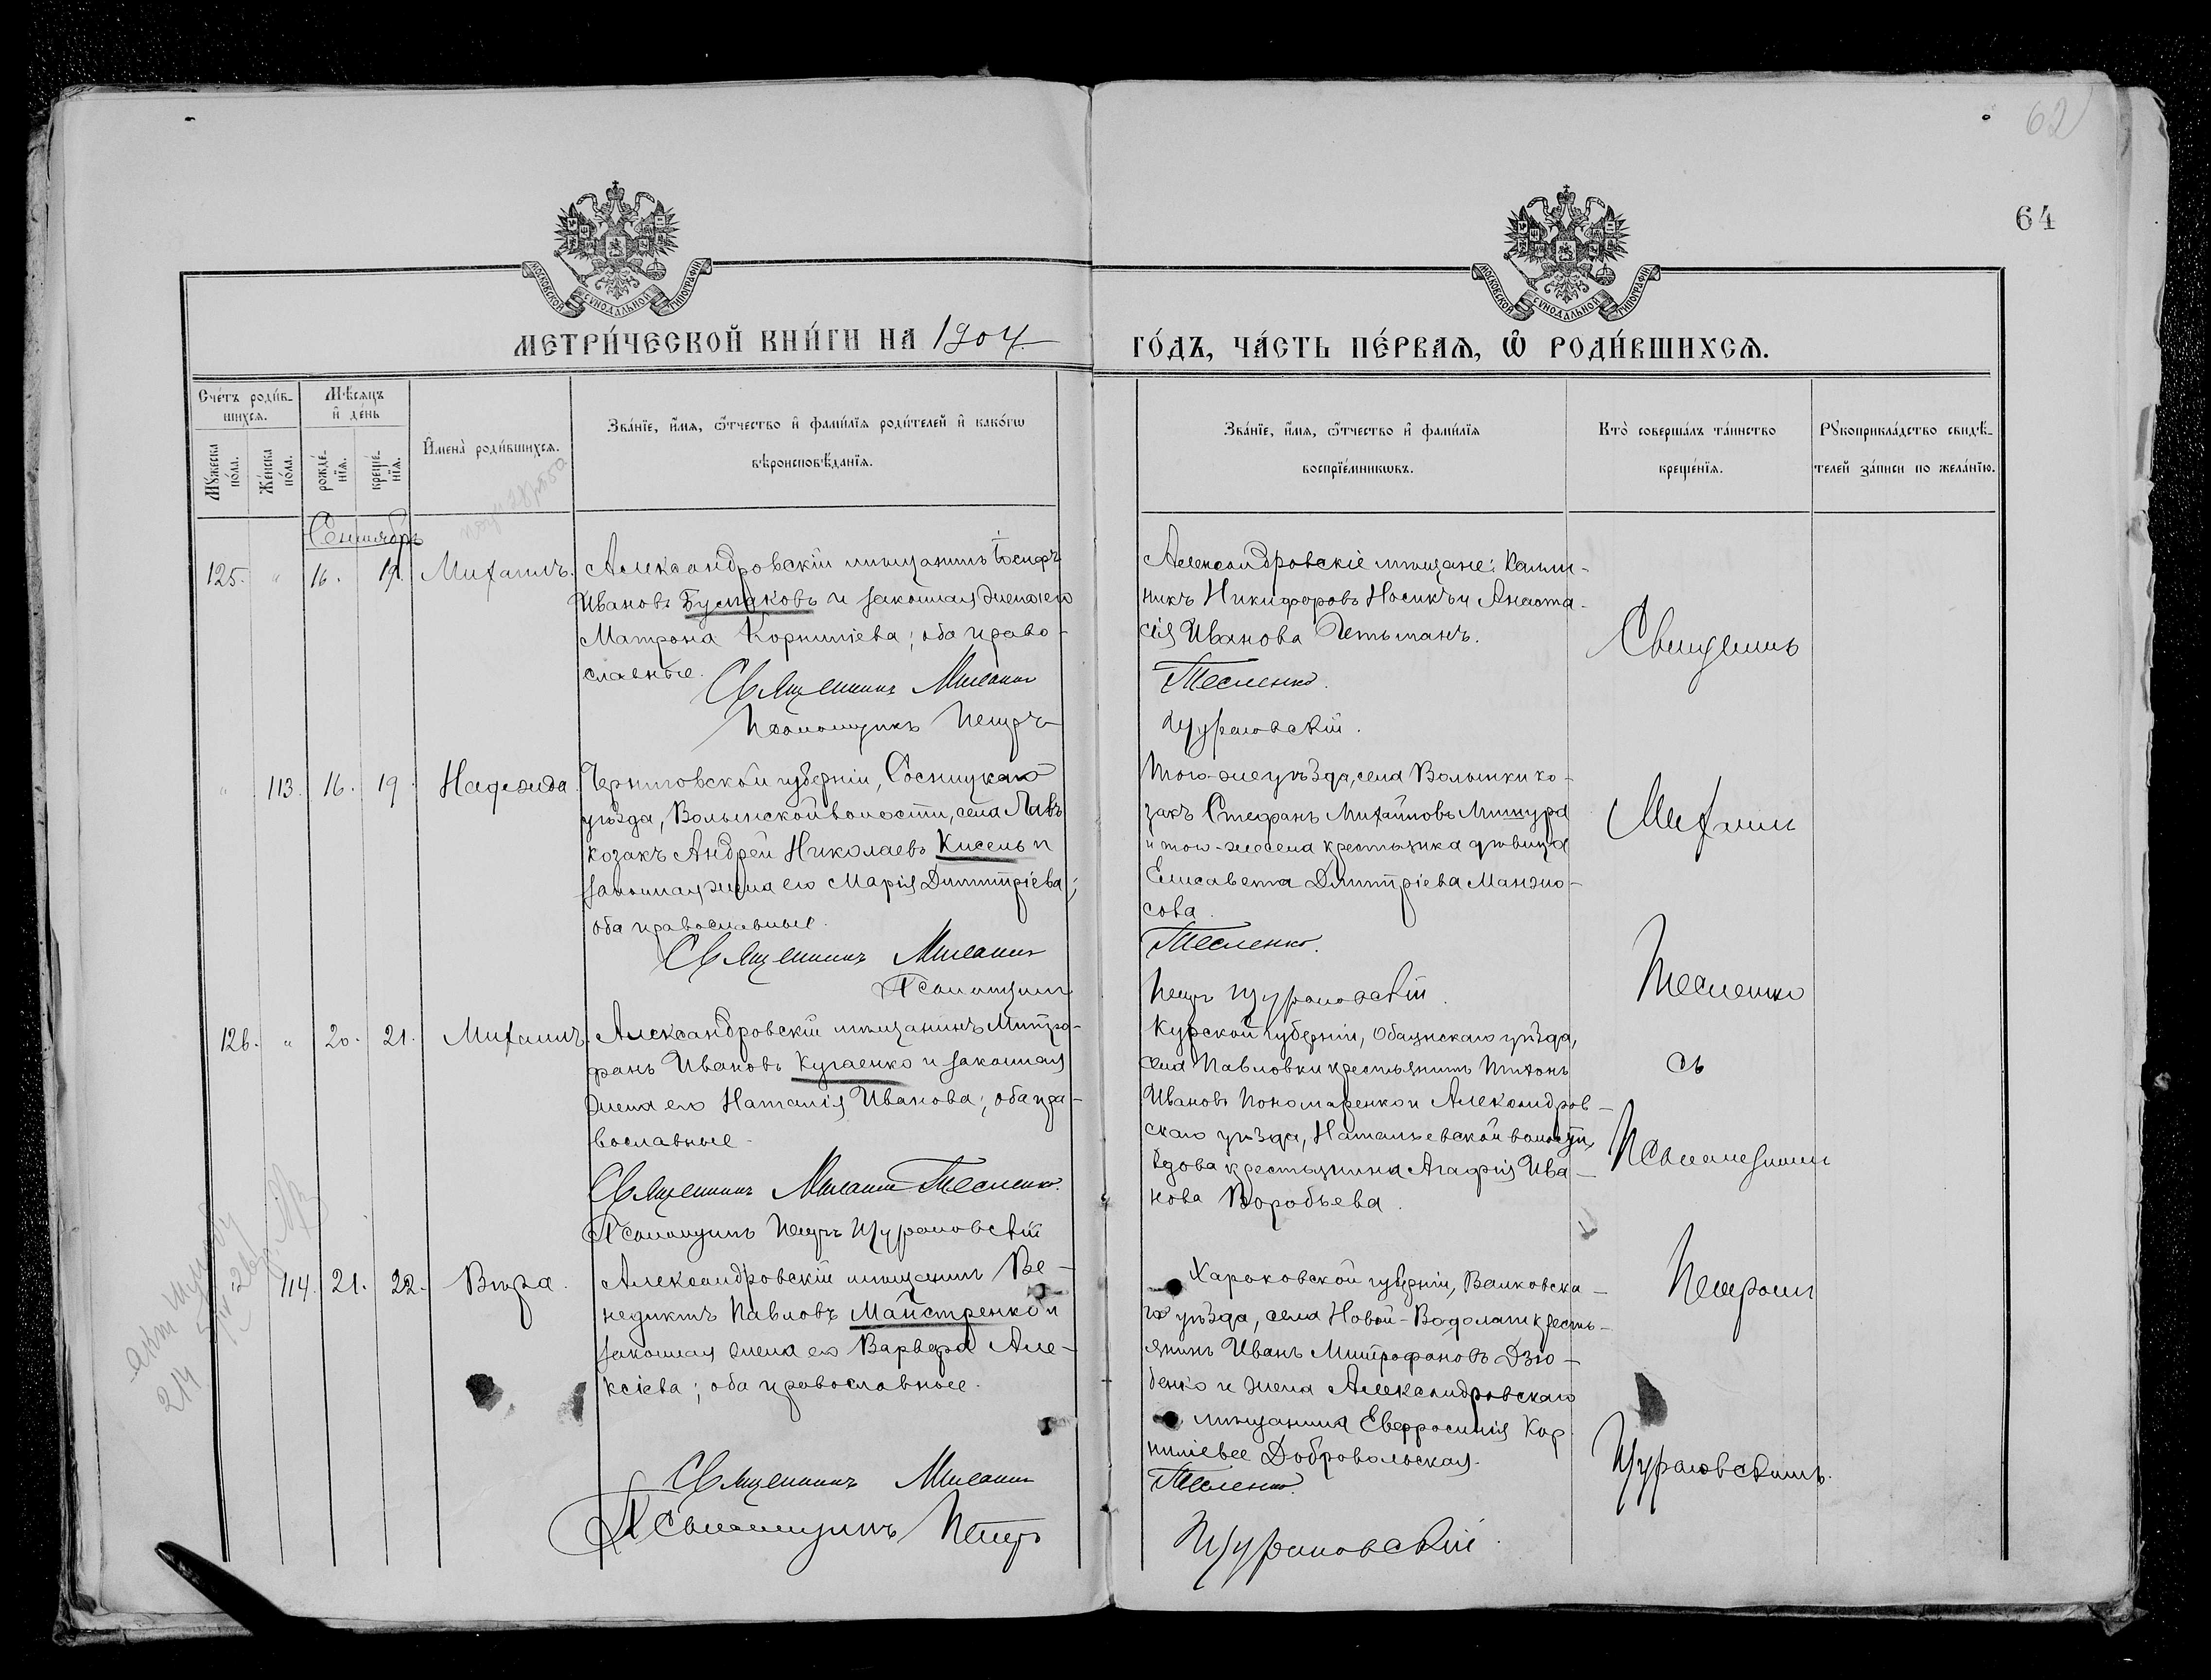 62
64
МОСКОВСКОЙ СѴНОДАЛЬНОЙ ТИПОГРАФІИ
МОСКОВСКОЙ СѴНОДАЛЬНОЙ ТИПОГРАФІИ
МЕТРИ́ЧЕСКОЙ КНИ́ГИ НА 1904
ГО́ДЪ, ЧА́СТЬ ПЕ́РВАѦ, Ѽ РОДИ́ВШИХСѦ.
Сче́тъ роди́в-
шихсѧ.
Мѣ́сѧцъ
и҆ де́нь
Мꙋ́жеска
по́ла.
Же́нска
по́ла.
рожде́-
нїѧ.
креще́-
нїѧ.
И҆мена̀ роди́вшихсѧ.
Зва́нїе, и҆́мѧ, ѻ҆́тчество и҆ фами́лїѧ роди́телей и҆ како́гѡ
вѣроисповѣ́данїѧ.
Зва́нїе, и҆́мѧ, ѻ҆́тчество и҆ фами́лїѧ
воспрїе́мникѡвъ.
Кто̀ соверша́лъ та́инство
креще́нїѧ.
Рꙋкоприкла́дство свидѣ́-
телей за́писи по жела́нїю.
Сентябрь
125. " 16. 19. Михаилъ.
Александровскій мѣщанинъ Іосифъ
Ивановъ Бузмаковъ и законная жена его
Матрона Корниліева; оба право-
славные.
Священникъ Михаилъ
Псаломщикъ Петръ
Александровскіе мѣщане: Калин-
никъ Никифоровъ Носикъ и Анаста-
сія Иванова Гетьманъ.
Тесленко.
Щуровскій.
Священникъ
" 113. 16. 19. Надежда.
Черниговской губерніи, Сосницкаго
уѣзда, Волынской волости, села Лавъ
козакъ Андрей Николаевъ Кисель и
законная жена его Марія Димитріева;
оба православные.
Священникъ Михаилъ
Псаломщикъ
Того-же уѣзда, села Волынки ко-
закъ Стефанъ Михайловъ Мишура
и того-же села крестьянка дѣвица
Елисавета Дмитріева Манжо-
сова.
Тесленко.
Петръ Щуровскій.
Михаилъ
Тесленко
126. " 20. 21. Михаилъ.
Александровскій мѣщанинъ Митро-
фанъ Ивановъ Кугаенко и законная
жена его Наталія Иванова; оба пра-
вославные.
Священникъ Михаилъ Тесленко.
Псаломщикъ Петръ Щуровскій
Курской губерніи, Обоянскаго уѣзда,
села Павловки крестьянинъ Тихонъ
Ивановъ Пономаренко и Александров-
скаго уѣзда, Натальевской волости,
вдова крестьянина Агафія Ива-
нова Воробьева.
съ
Псаломщикомъ
114. 21. 22. Вѣра.
Александровскій мѣщанинъ Ве-
недиктъ Павловъ Майстренко и
законная жена его Варвара Але-
ксіева; оба православные.
Священникъ Михаилъ
Псаломщикъ Петръ
Харьковской губерніи, Валковска-
го уѣзда, села Новой-Водолаги кресть-
янинъ Иванъ Митрофановъ Дзю-
бенко и жена Александровскаго
мѣщанина Евфросинія Кор
ниліевее Добровольская.
Тесленко.
Щуровскій.
Петромъ
Щуровскимъ.
214